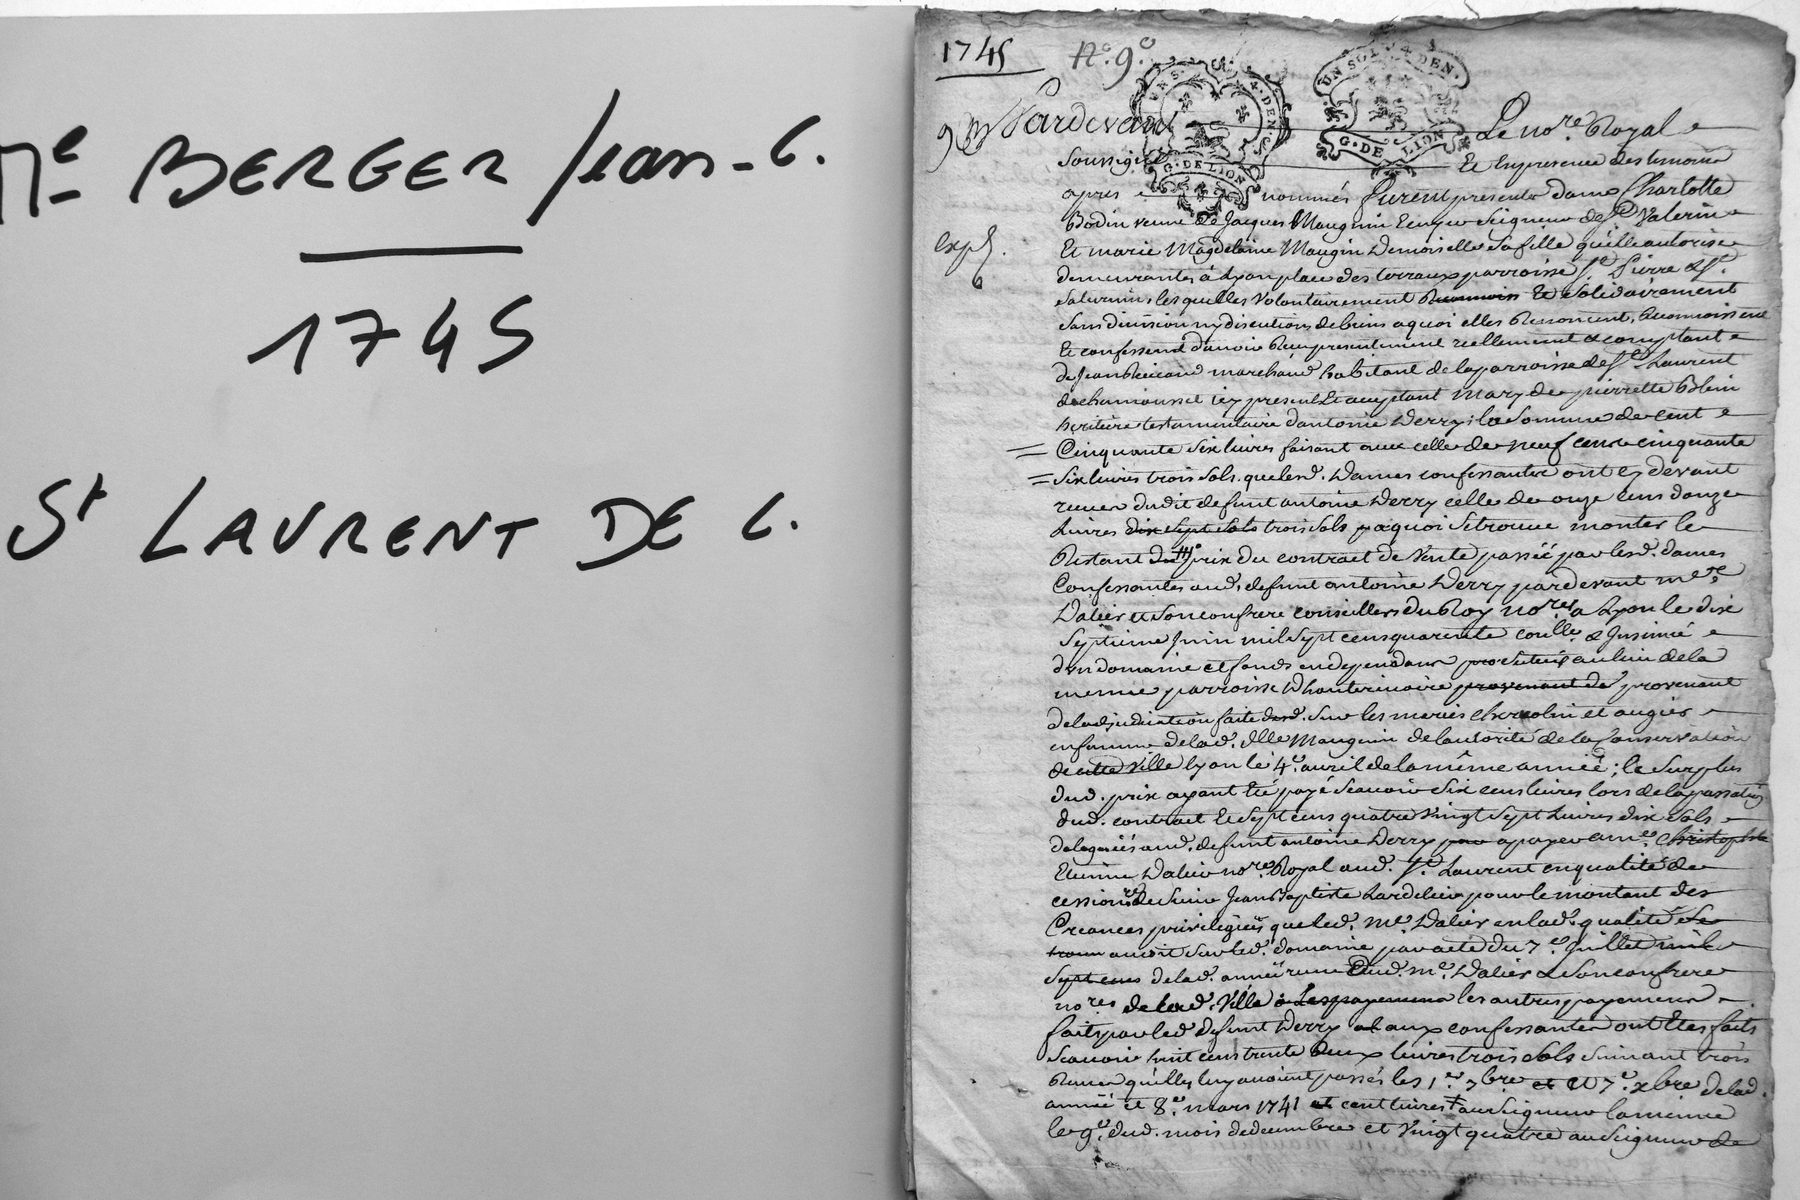 Me BERGER Jean-C.
1745
St LAURENT DE C.
1745 N°. 9e
UN SOL 4 DEN.
G. DE LION
UN SOL 4 DEN.
G. DE LION
9 Pardevant Le nore Royal
Soussigné Et En presence des temoins
apres nommés furent presente dame Charlotte
Bodin veuve de Jacques Maugnin Ecuyer Seigneur de St Valerin
Et marie Magdelaine Maugin Demoiselle Sa fille qu'elle autorise
demeurantes à Lyon place des terraux parroisse St. Pierre & St.
expé.
Saturnin, lesquelles volontairement Et Solidairement
Sans division ny discution de biens a quoi elles Renoncent, Reconnoissent
Et confessent d'avoir Reçu presentement reellement & comptant
de Jean marchand habitant de la parroisse de St Laurent
de chamousset icy present Et acceptant mary de pierrette Blein
heritiere testamentaire d'antoine Derry, la Somme de cent
Cinquante Six livres faisant avec celle de neuf cens cinquante
Six livres trois Sols que lesd. Dames confessantes ont cy devant
receu dudit defunt antoine Derry celle de onze cens douze
livres dix sept sols trois Sols, a quoi Se trouve monter le
Restant du prix du contract de Vente passée par lesd. dames
Confessantes aud. defunt antoine Derry pardevant me
Dalier et Son confrere conseillers du Roy nores a Lyon le dix
Septieme Juin mil Sept cens quarente & Insinué
d'un domaine et fonds en dependant au lieu de la
meme parroisse D'hauterivoire provenant de provenant
de ladjudication faite Sur les maries et augier
en faveur de lad. Dlle Maugnin de lautorité de la Conservation
de cette Ville lyon le 4e. avril de la même année; le Surplus
dud. prix ayant Eté payé Scavoir Six cens livres lors de la passation
dud. contract Et Sept cens quatre Vingt Sept livres dix Sols
deleguées aud. defunt antoine Derry pour a payer a me Christophle
Etienne Dalier nore Royal aud. St. Laurent en qualité de
cessionre de Sieur Jean Baptiste Lardelier pour le montant des
Creances privilegiées que led. me. Dalier en lad. qualité
avoit Sur led. domaine par acte du 7e. Juillet mil
Sept cens de lad. année receu dud. me. Dalier & Son confrere
nores de lad. Ville les autres payemens
faits par led. defunt Derry aux confessantes ont Etes faits
Scavoir huit cens trente deux livres trois Sols Suivant trois
Receus qu'elles luy avoient passés les 1er. 7bre et 7e. xbre de lad.
année et 8e. mars 1741 et cent livres au Seigneur
le 9e. dud. mois de decembre et Vingt quatre au Seigneur de